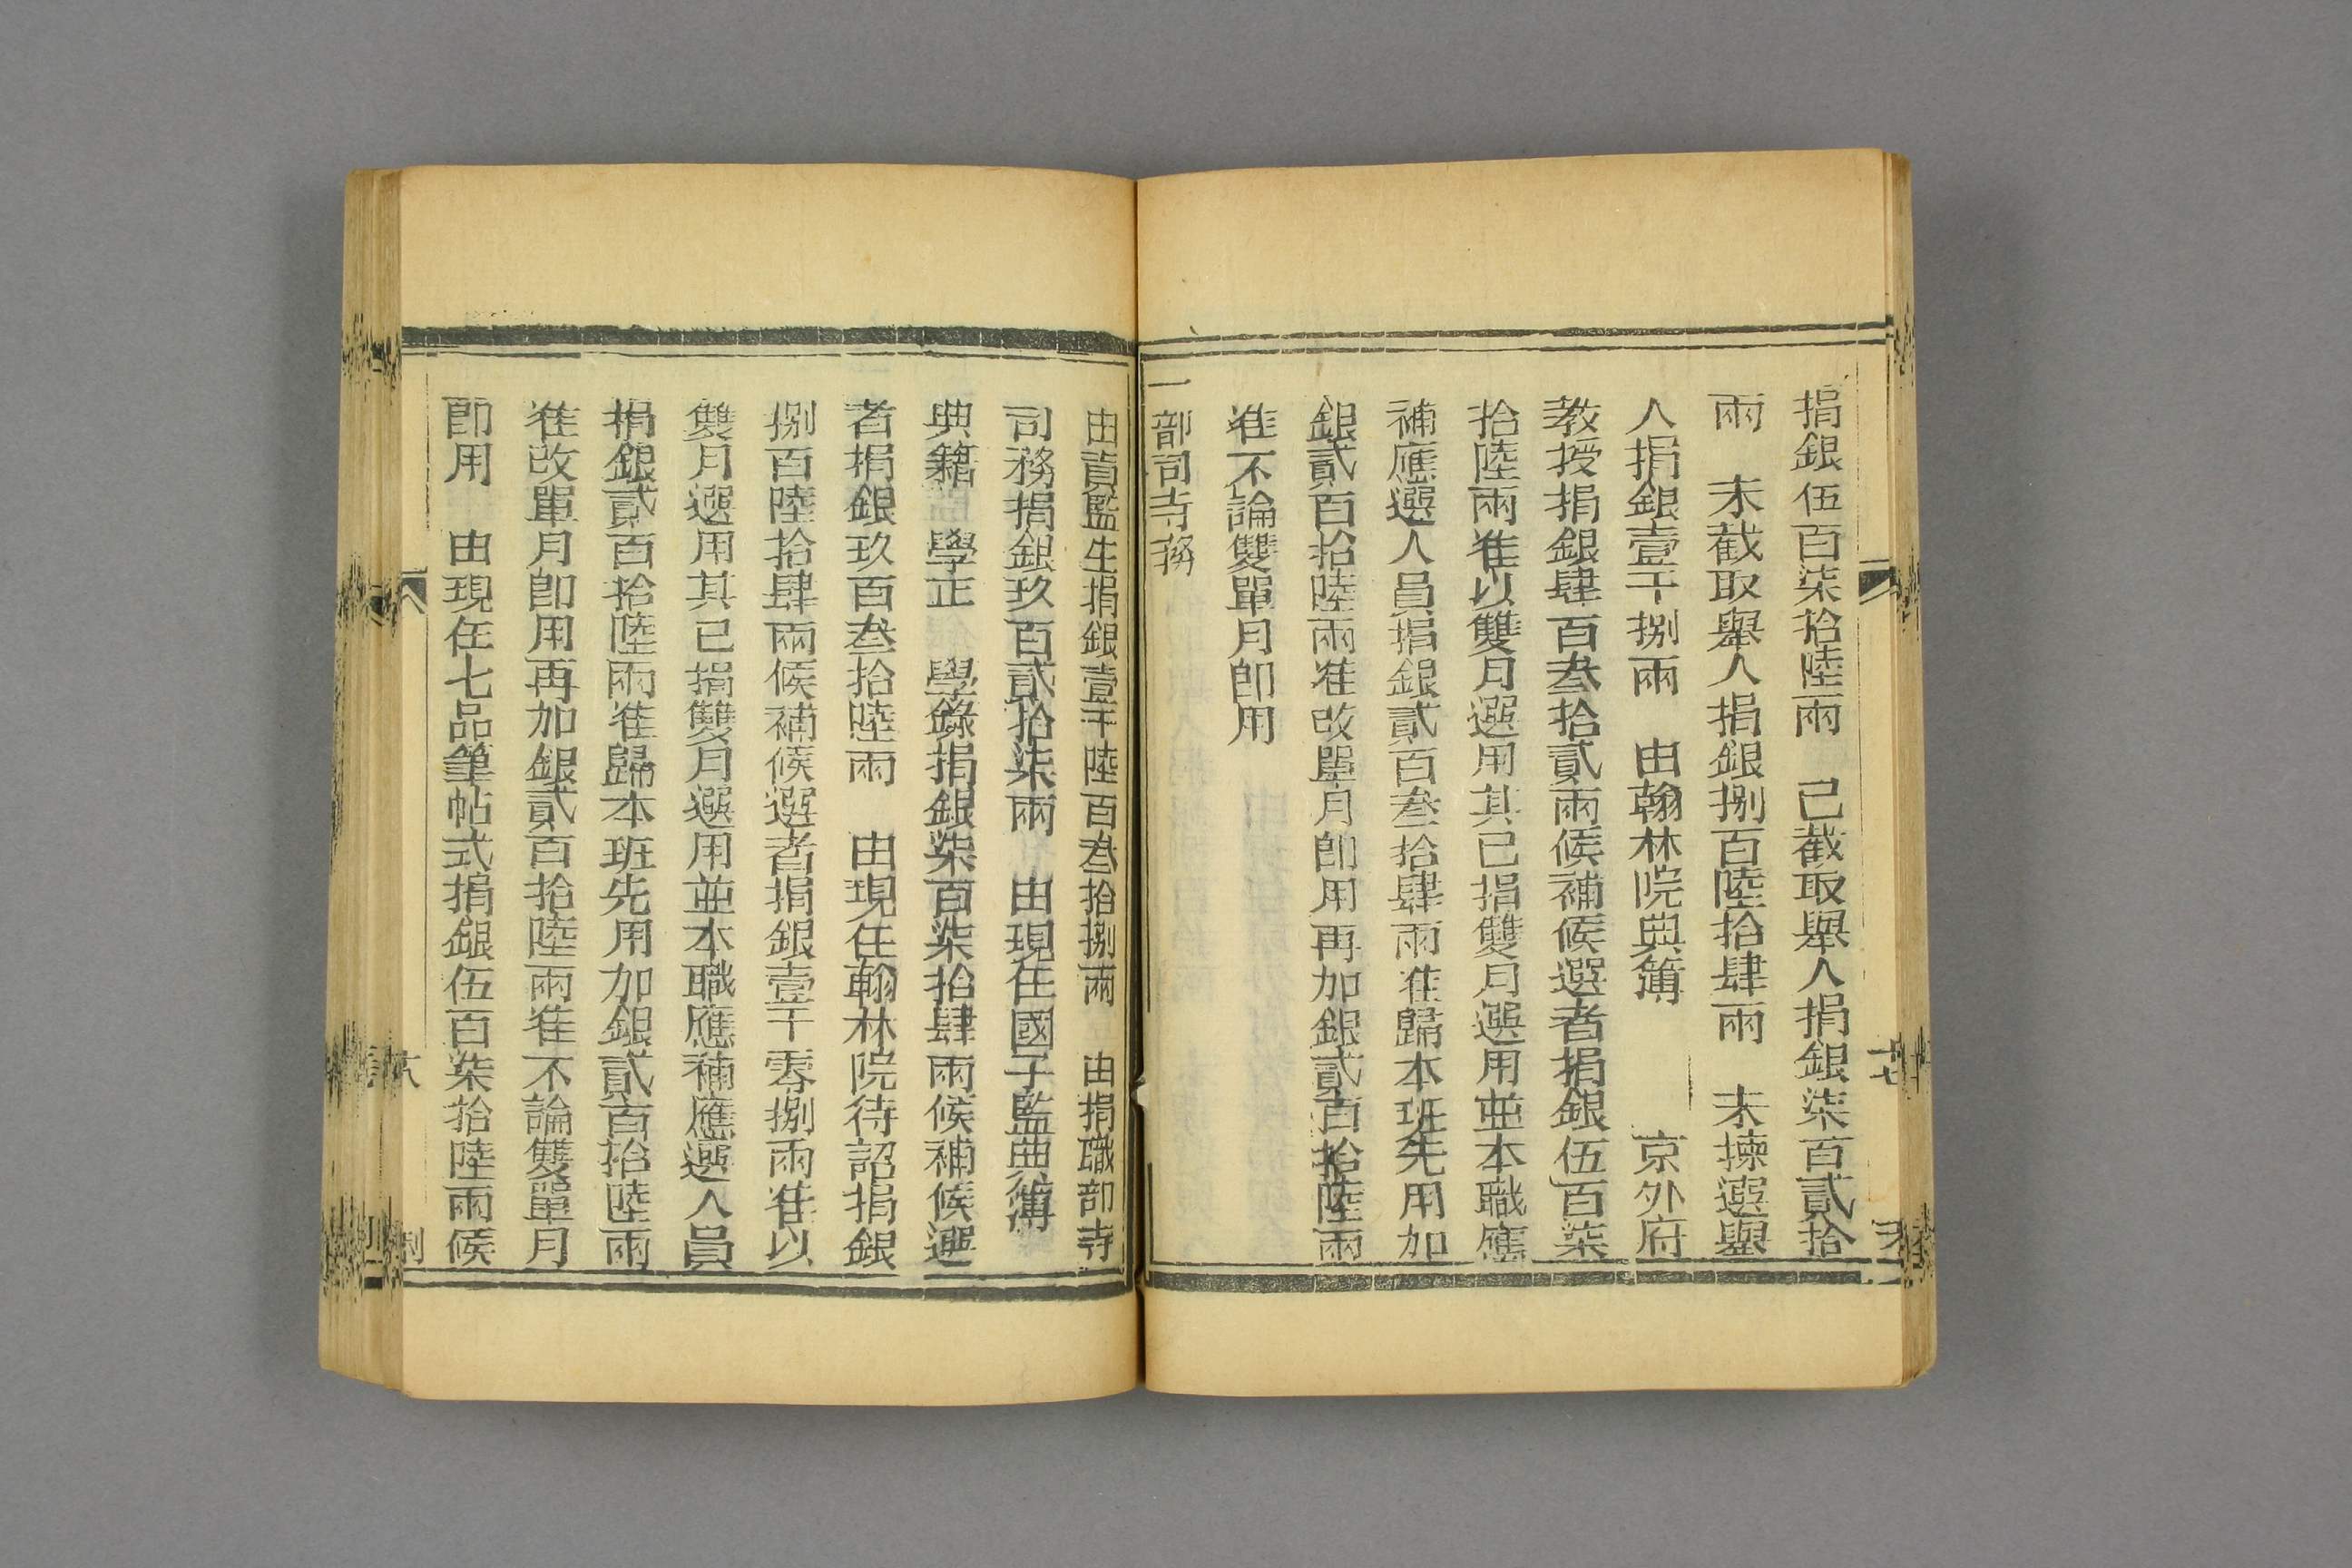 捐銀伍百柒拾陸兩　已截取舉人捐銀柒百貳拾
兩　未截取舉人捐銀捌百陸拾肆兩　未揀選舉
人捐銀壹千捌兩　由翰林院典簿　　京外府
教授捐銀肆百叁拾貳兩候補候選者捐銀伍百柒
拾陸兩准以雙月選用其已捐雙月選用並本職應
補應選人員捐銀貳百叁拾肆兩准歸本班先用加
銀貳百拾陸兩准改單月卽用再加銀貳百拾陸兩
准不論雙單月卽用
一部司寺務
由貢監生捐銀壹千陸百叁拾捌兩　由捐職部寺
司務捐銀玖百貳拾柒兩　由現任國子監典簿
典籍　學正　學錄捐銀柒百柒拾肆兩候補候選
者捐銀玖百叁拾陸兩　由現任翰林院待詔捐銀
捌百陸拾肆兩候補候選者捐銀壹千零捌兩准以
雙月選用其已捐雙月選用並本職應補應選人員
捐銀貳百拾陸兩准歸本班先用加銀貳百拾陸兩
准改單月卽用再加銀貳百拾陸兩准不論雙單月
卽用　由現任七品筆帖式捐銀伍百柒拾陸兩候